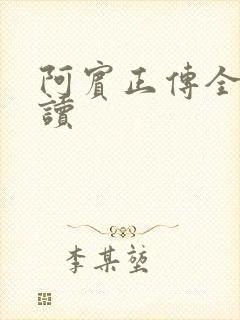 阿賓正傳全
讀
李某堃